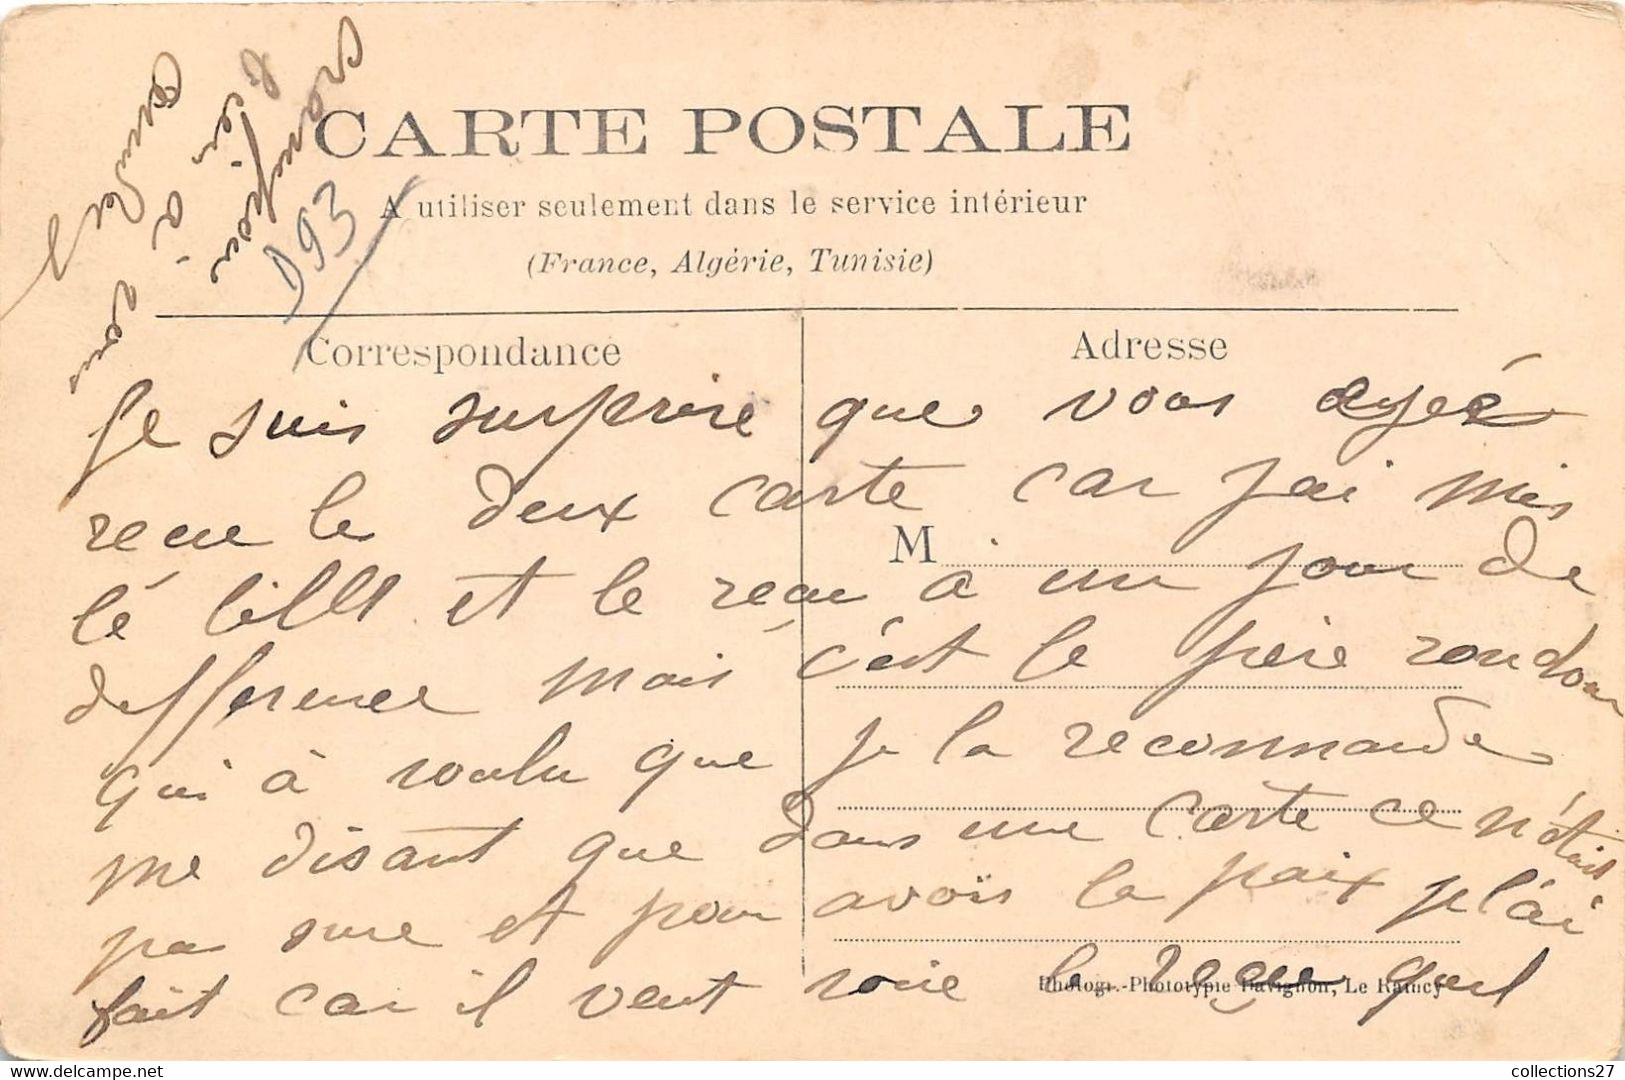 CARTE POSTALE
A utiliser seulement dans le service intérieur
(France, Algérie, Tunisie)
D93
Correspondance
Adresse
M
Je suis surprise que vous ayéé
recue le deux carte car jai mis
lé billet et le reçu a un jour de
difference mais c'est le père rondou
qui à voulu que je la reconnande
me disant que dans une carte ce n'étais
pa sure et pour avoïs la paix je l'ai
fait car il veut voie le reçue quil
Photogr.-Phototypie Davignon, Le Raincy
à vous
collections27